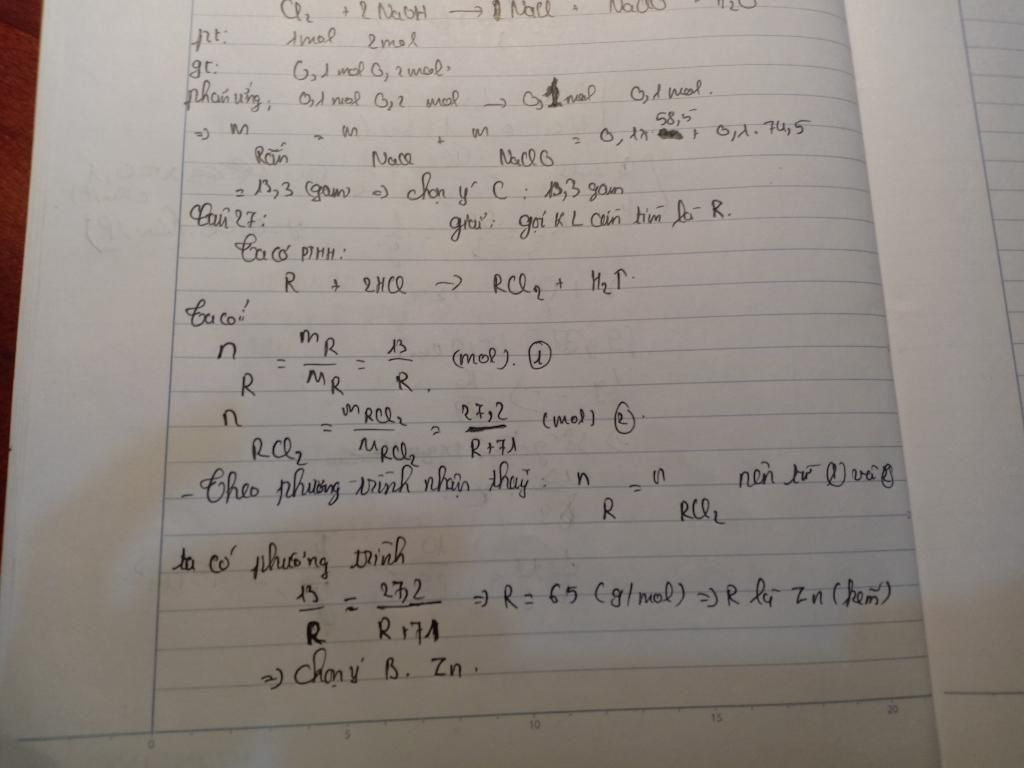 Cl₂ + 2NaOH → NaCl + NaClO + H₂O
pt: 1mol 2mol
gt: 0,1 mol 0,2 mol.
phản ứng: 0,1 mol 0,2 mol → 0,1 mol 0,1 mol.
=> m Rắn = m NaCl + m NaClO = 0,1x 58,5 + 0,1. 74,5
= 13,3 (gam => chọn ý C : 13,3 gam
Câu 27: giải: gọi KL cần tìm là R.
Ta có PTHH:
R + 2HCl → RCl₂ + H₂↑.
Ta có:
n R = m R / M R = 13 / R (mol). ①
n RCl₂ = m RCl₂ / M RCl₂ = 27,2 / R+71 (mol) ②.
- Theo phương trình nhận thấy: n R = n RCl₂ nên từ ① và ②
ta có phương trình
13 / R = 27,2 / R+71 => R = 65 (g/mol) => R là Zn (kẽm)
=> Chọn ý B. Zn.
0 5 10 15 20